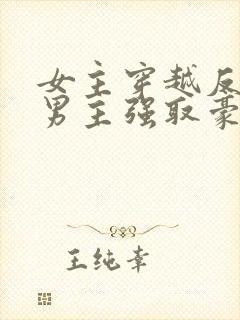 女主穿越反
男主强取豪
王纯幸